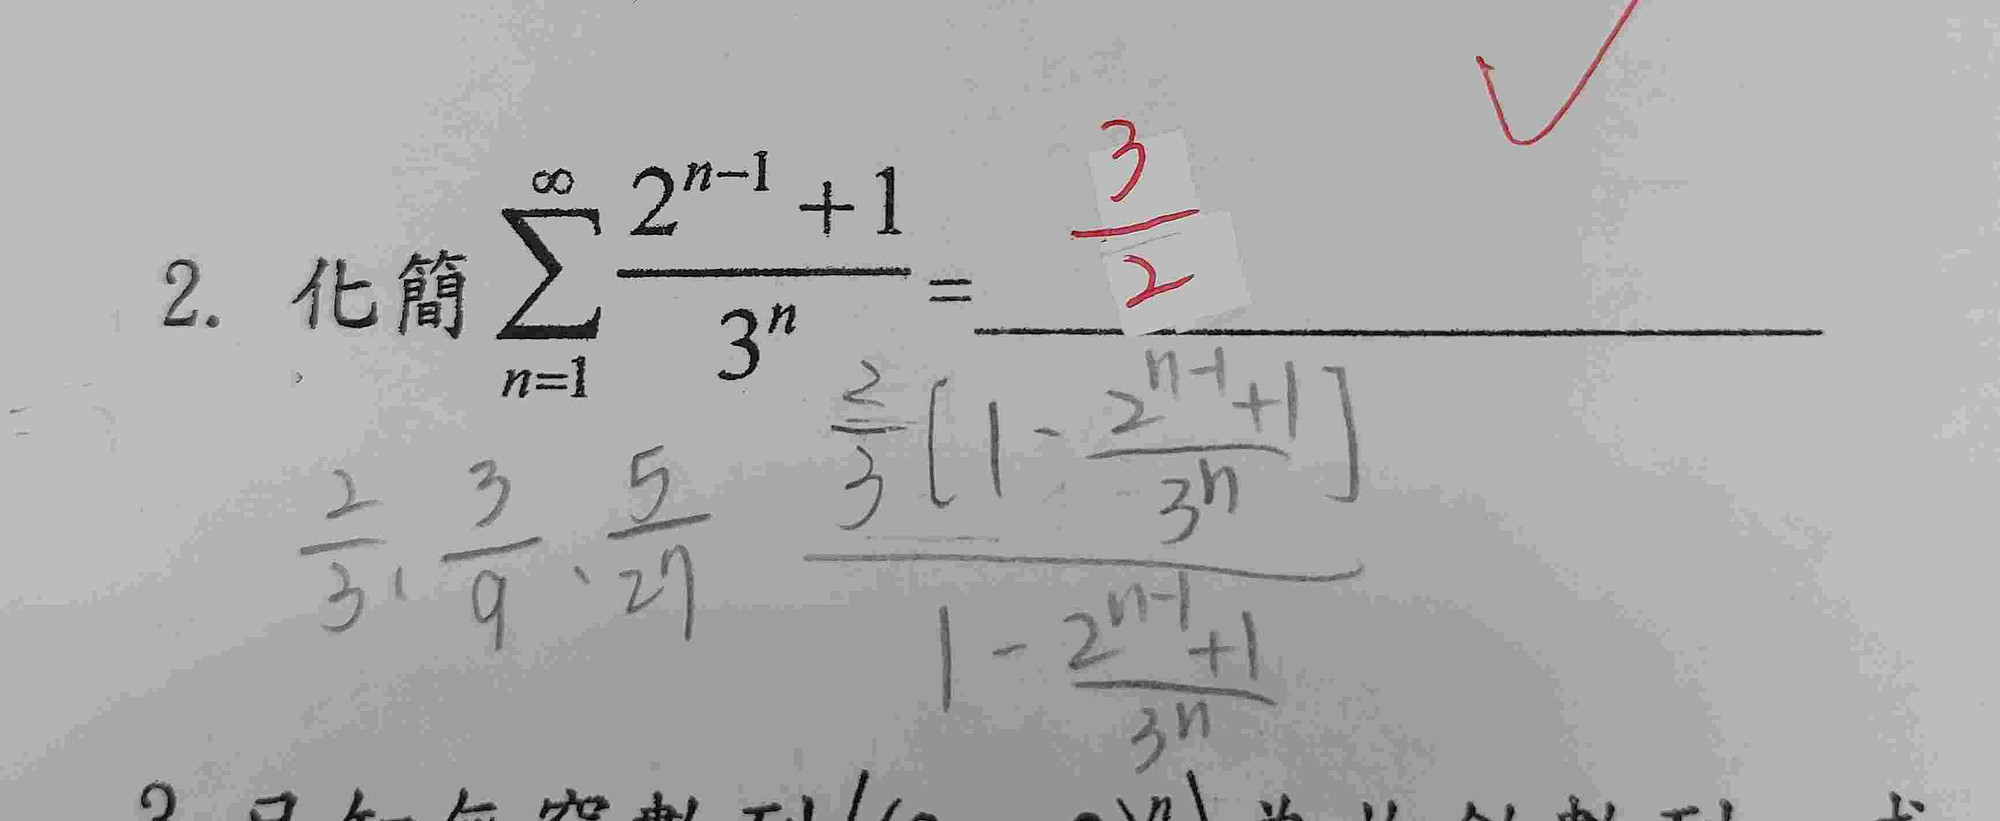 2. 化簡 \sum_{n=1}^{\infty} \frac{2^{n-1}+1}{3^n} = \frac{3}{2}
\frac{2}{3}、\frac{3}{9}、\frac{5}{27}
\frac{\frac{2}{3}[1-\frac{2^{n-1}+1}{3^n}]}{1-\frac{2^{n-1}+1}{3^n}}